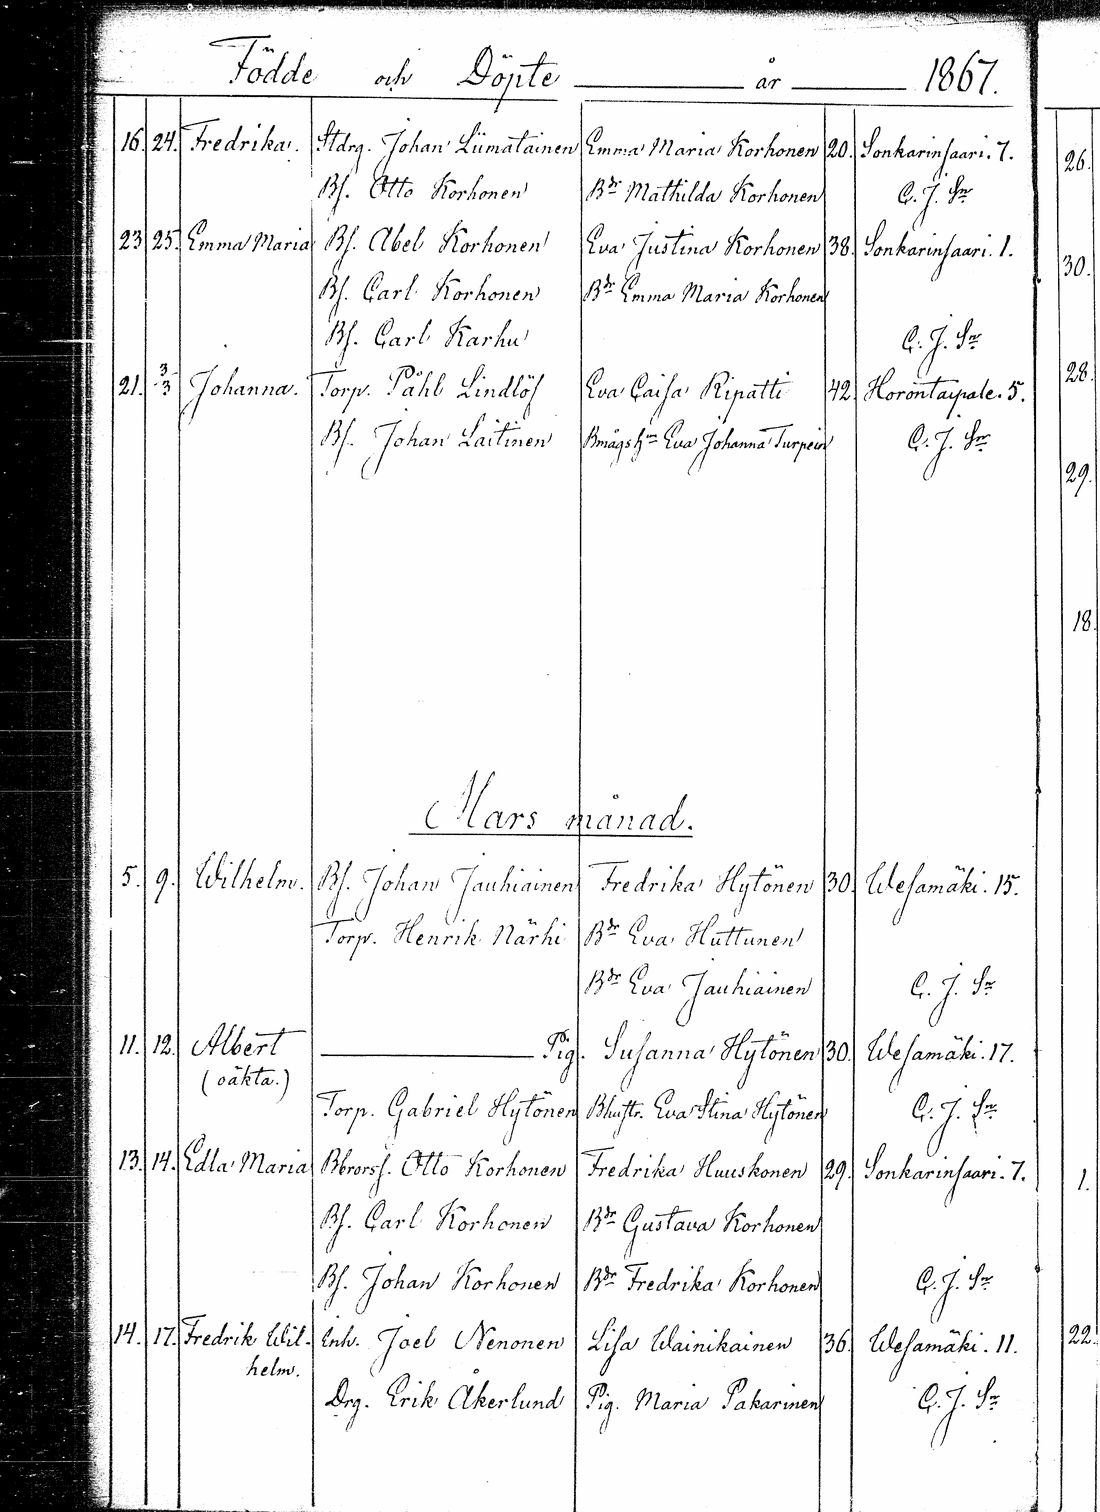 Födde och Döpte år 1867.
16. 24. Fredrika. Stdrg. Johan Liimatainen Emma Maria Korhonen 20. Sonkarinsaari. 7.
Bs. Otto Korhonen Bdr Mathilda Korhonen C. J. Sr
23 25. Emma Maria Bs. Abel Korhonen Eva Justina Korhonen 38. Sonkarinsaari. 1.
Bs. Carl Korhonen Bdr Emma Maria Korhonen
Bs. Carl Karhu C. J. Sr
21. 3/3 Johanna. Torp. Påhl Lindlöf Eva Caisa Ripatti 42. Horontaipale. 5.
Bs. Johan Laitinen Bmågs hu Eva Johanna Turpein C. J. Sr
Mars månad.
5. 9. Wilhelm. Bs. Johan Jauhiainen Fredrika Hytönen 30. Wesamäki. 15.
Torp. Henrik Närhi Bdr Eva Huttunen
Bdr Eva Jauhiainen C. J. Sr
11. 12. Albert Pig. Susanna Hytönen 30. Wesamäki. 17.
(oäkta.)
Torp. Gabriel Hytönen Bhustr. Eva Stina Hytönen C. J. Sr
13. 14. Edla Maria Bbrors. Otto Korhonen Fredrika Huuskonen 29. Sonkarinsaari. 7.
Bs. Carl Korhonen Bdr Gustava Korhonen
Bs. Johan Korhonen Bdr Fredrika Korhonen C. J. Sr
14. 17. Fredrik Wil- Inh. Joel Nenonen Lisa Wainikainen 36. Wesamäki. 11.
helm.
Drg. Erik Åkerlund Pig. Maria Pakarinen C. J. Sr
26.
30.
28.
29.
18.
1.
22.